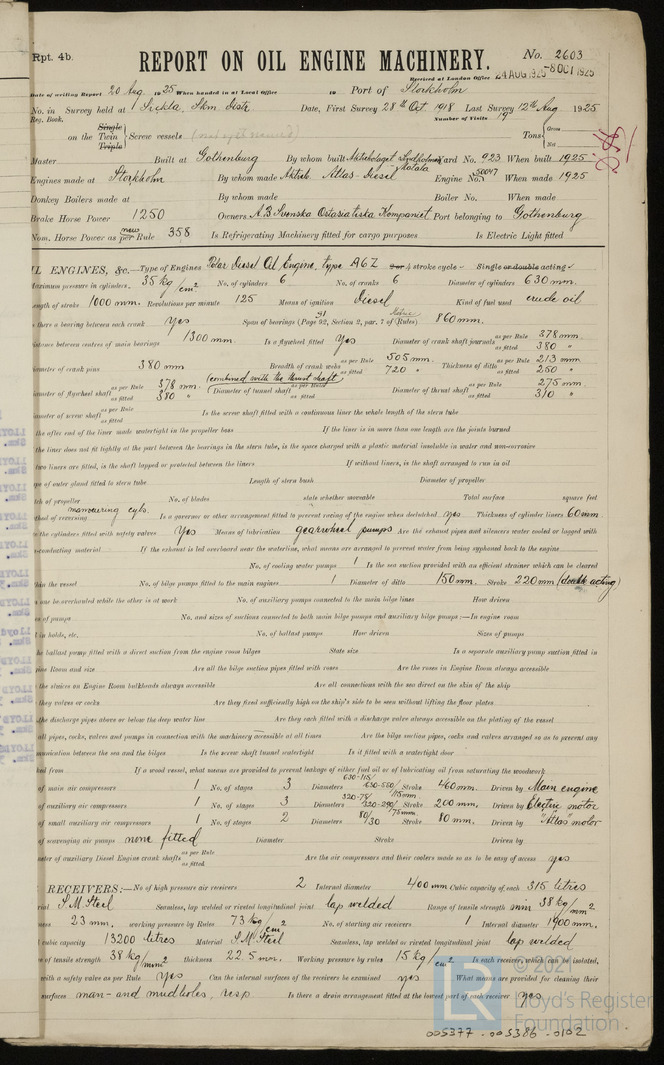 Rpt. 4b.
REPORT ON OIL ENGINE MACHINERY.
No. 2603
Received at London Office 24 AUG 1925 -8 OCT 1925
Date of writing Report 20 Aug 1925 When handed in at Local Office 19 Port of Stockholm
No. in Survey held at Sickla, Skm Distr. Date, First Survey 28th Oct. 1918 Last Survey 12th Aug 1925
Reg. Book. Number of Visits 19
on the Single Twin Triple Screw vessels Tons Gross Net
Master Built at Gothenburg By whom built Aktiebolaget Lindholmen Motala Yard No. 923 When built 1925
Engines made at Stockholm By whom made Aktieb. Atlas-Diesel Engine No. 50047 When made 1925
Donkey Boilers made at By whom made Boiler No. When made
Brake Horse Power 1250 Owners A.B Svenska Ostasiatiska Kompaniet Port belonging to Gothenburg
Nom. Horse Power as per new Rule 358 Is Refrigerating Machinery fitted for cargo purposes Is Electric Light fitted
IL ENGINES, &c. Type of Engines Polar Diesel Oil Engine, type A6Z 2 or 4 stroke cycle Single or double acting
Maximum pressure in cylinders 35 kg/cm2 No. of cylinders 6 No. of cranks 6 Diameter of cylinders 630 mm.
Length of stroke 1000 mm. Revolutions per minute 125 Means of ignition Diesel Kind of fuel used crude oil
Is there a bearing between each crank Yes Span of bearings (Page 92, Section 2, par. 7 of Rules) 860 mm.
Distance between centres of main bearings 1300 mm. Is a flywheel fitted Yes Diameter of crank shaft journals as per Rule 378 mm. as fitted 380 "
Diameter of crank pins 380 mm Breadth of crank webs as per Rule 505 mm. as fitted 720 " Thickness of ditto as per Rule 213 mm. as fitted 250 "
Diameter of flywheel shaft as per Rule 378 mm. as fitted 380 " (combined with the thrust shaft) Diameter of tunnel shaft as per Rule as fitted Diameter of thrust shaft as per Rule 275 mm. as fitted 310 "
Diameter of screw shaft as per Rule as fitted Is the screw shaft fitted with a continuous liner the whole length of the stern tube
the after end of the liner made watertight in the propeller boss If the liner is in more than one length are the joints burned
the liner does not fit tightly at the part between the bearings in the stern tube, is the space charged with a plastic material insoluble in water and non-corrosive
two liners are fitted, is the shaft lapped or protected between the liners If without liners, is the shaft arranged to run in oil
pe of outer gland fitted to stern tube Length of stern bush Diameter of propeller
tch of propeller No. of blades state whether moveable Total surface square feet
thod of reversing manoeuvring cyls. Is a governor or other arrangement fitted to prevent racing of the engine when declutched yes Thickness of cylinder liners 60 mm
the cylinders fitted with safety valves Yes Means of lubrication gearwheel pumps Are the exhaust pipes and silencers water cooled or lagged with
-conducting material If the exhaust is led overboard near the waterline, what means are arranged to prevent water from being syphoned back to the engine
No. of cooling water pumps 1 Is the sea suction provided with an efficient strainer which can be cleared
thin the vessel No. of bilge pumps fitted to the main engines 1 Diameter of ditto 150 mm. Stroke 220 mm (double acting)
one be overhauled while the other is at work No. of auxiliary pumps connected to the main bilge lines How driven
es of pumps No. and sizes of suctions connected to both main bilge pumps and auxiliary bilge pumps:—In engine room
d in holds, etc. No. of ballast pumps How driven Sizes of pumps
he ballast pump fitted with a direct suction from the engine room bilges State size Is a separate auxiliary pump suction fitted in
ine Room and size Are all the bilge suction pipes fitted with roses Are the roses in Engine Room always accessible
the sluices on Engine Room bulkheads always accessible Are all connections with the sea direct on the skin of the ship
they valves or cocks Are they fixed sufficiently high on the ship's side to be seen without lifting the floor plates
the discharge pipes above or below the deep water line Are they each fitted with a discharge valve always accessible on the plating of the vessel
all pipes, cocks, valves and pumps in connection with the machinery accessible at all times Are the bilge suction pipes, cocks and valves arranged so as to prevent any
munication between the sea and the bilges Is the screw shaft tunnel watertight Is it fitted with a watertight door
ked from If a wood vessel, what means are provided to prevent leakage of either fuel oil or of lubricating oil from saturating the woodwork
of main air compressors 1 No. of stages 3 Diameters 630-115/630-550/ Stroke 460 mm. Driven by Main engine
of auxiliary air compressors 1 No. of stages 3 Diameters 320-290/ Stroke 200 mm. Driven by Electric motor
of small auxiliary air compressors 1 No. of stages 2 Diameters 80/30 Stroke 80 mm. Driven by "Atlas" motor
of scavenging air pumps none fitted Diameter Stroke Driven by
meter of auxiliary Diesel Engine crank shafts as per Rule as fitted Are the air compressors and their coolers made so as to be easy of access yes
RECEIVERS:— No of high pressure air receivers 2 Internal diameter 400 mm Cubic capacity of each 315 litres
rial S.M. Steel Seamless, lap welded or riveted longitudinal joint lap welded Range of tensile strength min 38 kg/mm2
ness 23 mm. working pressure by Rules 73 kg/cm2 No. of starting air receivers 1 Internal diameter 1900 mm.
l cubic capacity 13200 litres Material S.M. Steel Seamless, lap welded or riveted longitudinal joint lap welded
e of tensile strength 38 kg/mm2 thickness 22.5 mm. Working pressure by rules 15 kg/cm2 Is each receiver, which can be isolated,
with a safety valve as per Rule Yes Can the internal surfaces of the receivers be examined yes What means are provided for cleaning their
surfaces man- and mudholes, resp. Is there a drain arrangement fitted at the lowest part of each receiver yes
© 2021
Lloyd's Register
Foundation
LR
005377-005386-0102